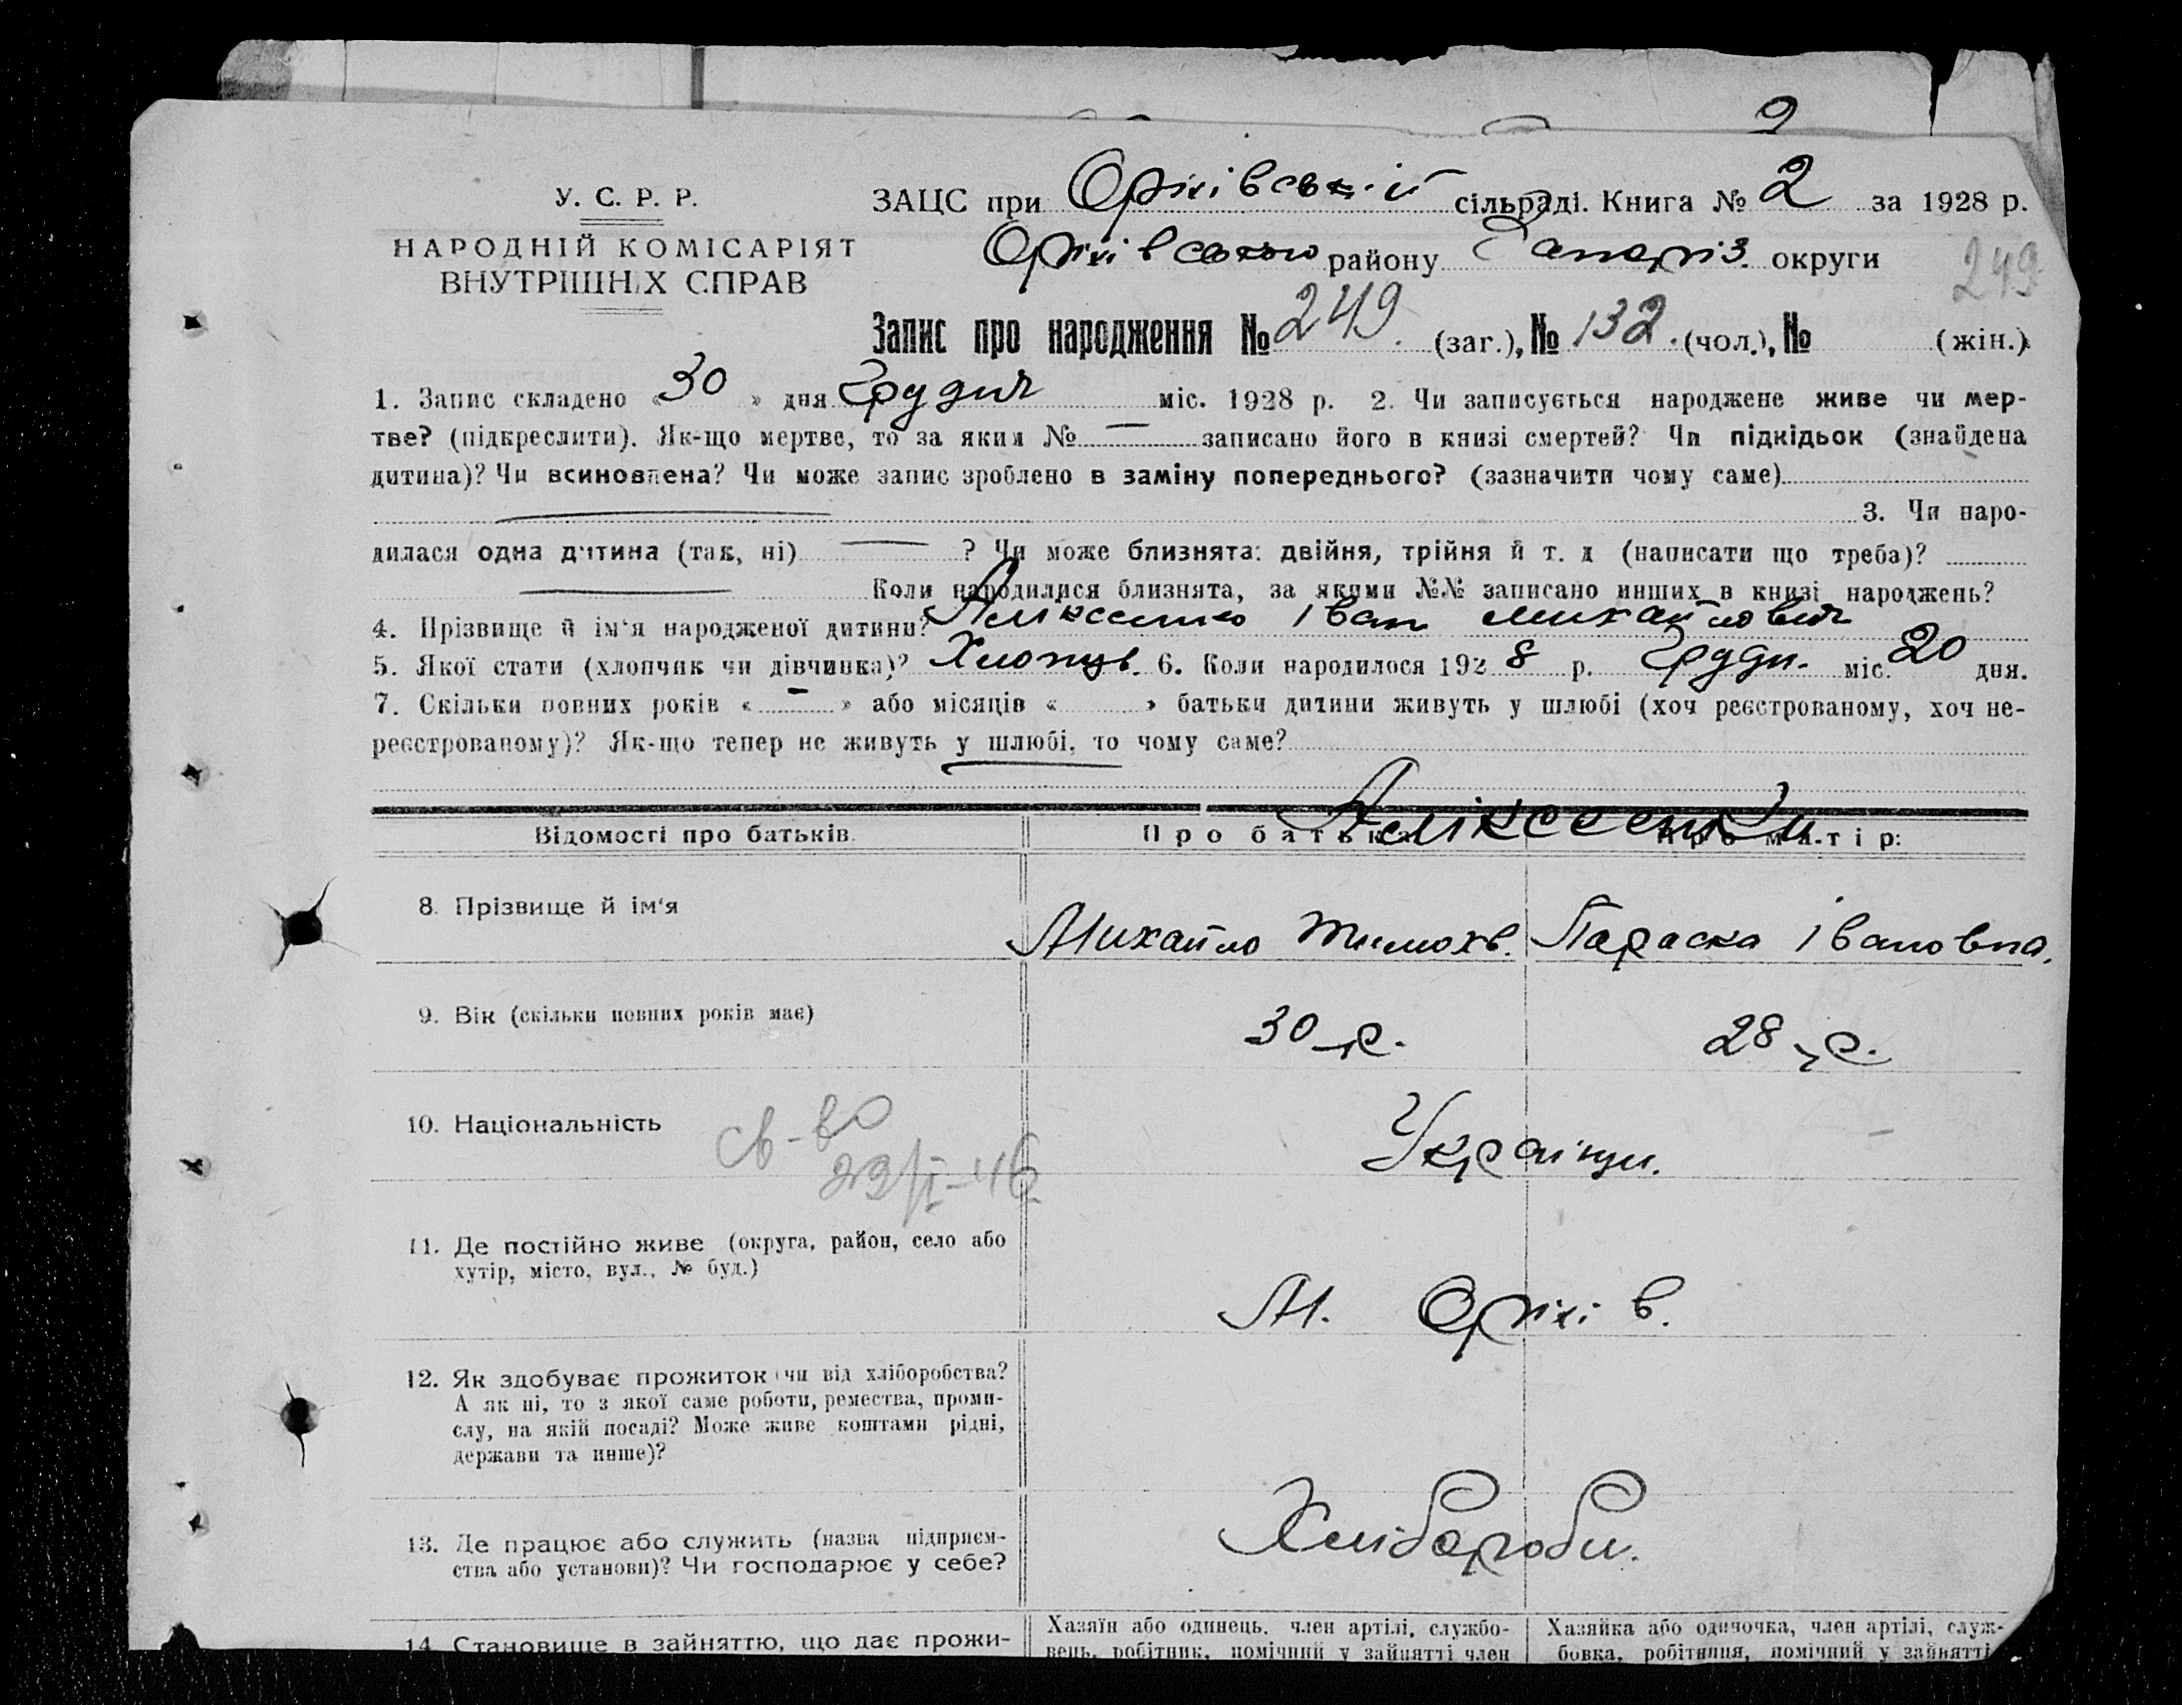 2
У. С. Р. Р.
НАРОДНІЙ КОМІСАРІЯТ
ВНУТРІШНІХ СПРАВ
ЗАЦС при Оріхівській сільраді. Книга № 2 за 1928 р.
Оріхівського району Запоріз. округи
249
Запис про народження № 249. (заг.), № 132. (чол.), № (жін.)
1. Запис складено « 30 » дня Грудня міс. 1928 р. 2. Чи записується народжене живе чи мер-
тве? (підкреслити). Як-що мертве, то за яким № — записано його в книзі смертей? Чи підкідьок (знайдена
дитина)? Чи всиновлена? Чи може запис зроблено в заміну попереднього? (зазначити чому саме)
3. Чи наро-
дилася одна дитина (так, ні) — ? Чи може близнята: двійня, трійня й т. д (написати що треба)?
Коли народилися близнята, за якими №№ записано инших в книзі народжень?
4. Прізвище й ім'я народженої дитини? Аліксеєнко Іван Михайлович
5. Якої стати (хлопчик чи дівчинка)? Хлопець. 6. Коли народилося 1928 р. Грудн. міс. 20 дня.
7. Скільки повних років « - » або місяців « » батьки дитини живуть у шлюбі (хоч реєстрованому, хоч не-
реєстрованому)? Як-що тепер не живуть у шлюбі, то чому саме?
Відомості про батьків. Про батька: Про матір:
Аліксеєнки
8. Прізвище й ім'я Михайло Тимохв. Параска Івановна.
9. Вік (скільки повних років має) 30 р. 28 р.
10. Національність Українци.
св-во
22/I-46
11. Де постійно живе (округа, район, село або
хутір, місто, вул., № буд.)
М. Оріхів.
12. Як здобуває прожиток (чи від хліборобства?
А як ні, то з якої саме роботи, ремества, проми-
слу, на якій посаді? Може живе коштами рідні,
держави та инше)?
Хлібороби.
13. Де працює або служить (назва підприєм-
ства або установи)? Чи господарює у себе?
14. Становище в зайняттю, що дає прожи-
Хазяїн або одинець, член артілі, службо-
вець, робітник, помічний у зайнятті член
Хазяйка або одиночка, член артілі, служ-
бовка, робітниця, помічний у зайнятті